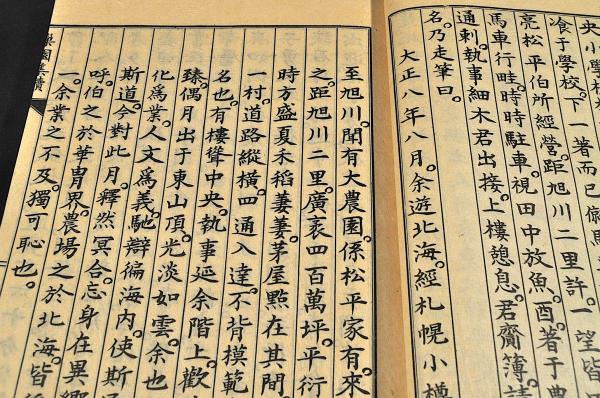 央小學校
下一著而已。
亮松平伯所經營。距旭川二里許。一望皆
馬車行畦。時時駐車。視田中放魚。酉著于農
通刺。執事細木君出接。上樓憩息。君齎簿。請
名。乃走筆曰。
大正八年八月。余遊北海。經札幌小樽
至旭川。聞有大農園。係松平家有。來
之。距旭川二里。廣袤四百萬坪。平衍
時方盛夏。禾稻萋萋。茅屋點在其間
一村。道路縱橫。四通八達。不背模範
名也。有樓聳中央。執事延余階上。歡
臻。偶月出于東山頂。光淡如雲。余也
化爲業。人文爲義。馳辯徧海内。使斯
斯道。今對此月。釋然冥合。忘身在異鄉
呼。伯之於華冑界。農場之於北海。皆
一。余業之不及。獨可恥也。